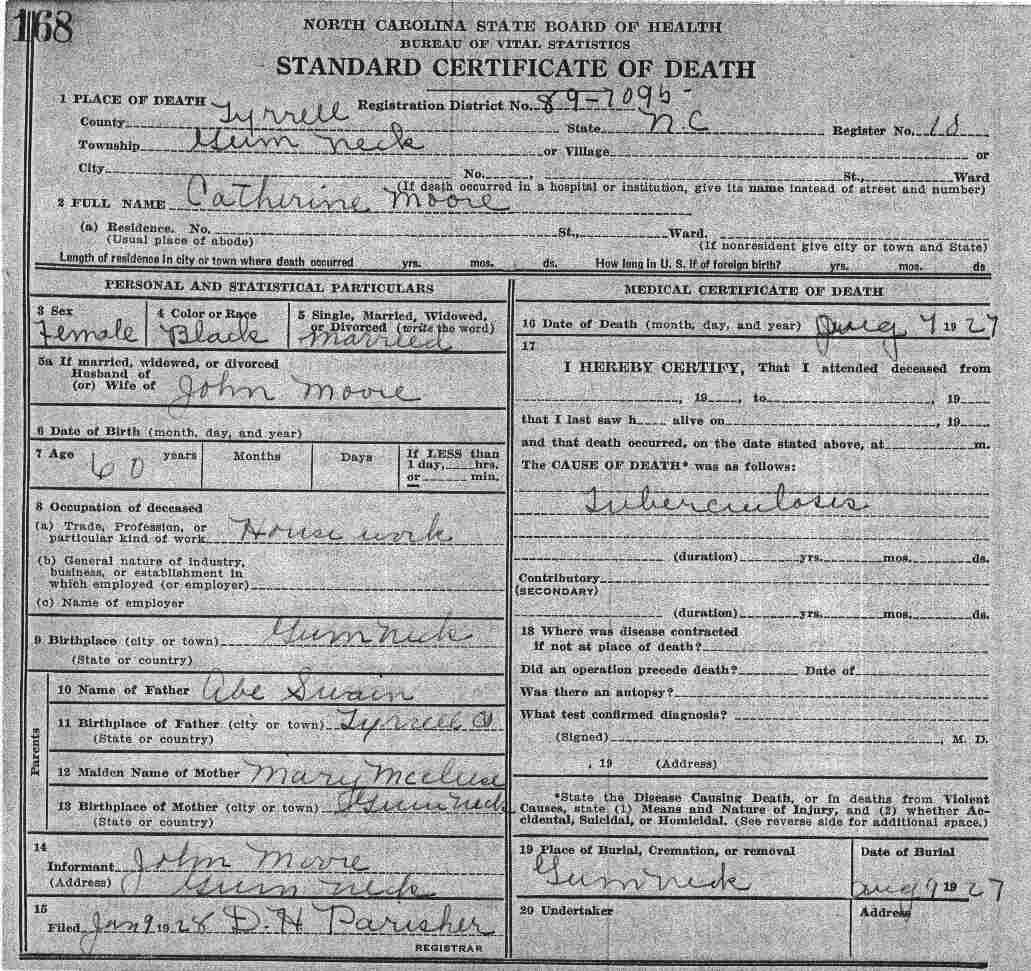 168
NORTH CAROLINA STATE BOARD OF HEALTH
BUREAU OF VITAL STATISTICS
STANDARD CERTIFICATE OF DEATH
1 PLACE OF DEATH Registration District No. 89-7095
County Tyrrell State N.C Register No. 18
Township Gum Neck or Village or
City No. , St., Ward
(If death occurred in a hospital or institution, give its name instead of street and number)
2 FULL NAME Catherine Moore
(a) Residence. No. St., Ward.
(Usual place of abode) (If nonresident give city or town and State)
Length of residence in city or town where death occurred yrs. mos. ds. How long in U. S. if of foreign birth? yrs. mos. ds
PERSONAL AND STATISTICAL PARTICULARS
3 Sex 4 Color or Race 5 Single, Married, Widowed,
or Divorced (write the word)
Female Black Married
5a If married, widowed, or divorced
Husband of
(or) Wife of John Moore
6 Date of Birth (month, day, and year)
7 Age 60 years Months Days If LESS than
1 day, hrs.
or min.
8 Occupation of deceased
(a) Trade, Profession, or
particular kind of work House work
(b) General nature of industry,
business, or establishment in
which employed (or employer)
(c) Name of employer
9 Birthplace (city or town) Gum Neck
(State or country)
Parents
10 Name of Father Abe Swain
11 Birthplace of Father (city or town) Tyrrell Co
(State or country)
12 Maiden Name of Mother Mary
13 Birthplace of Mother (city or town) Gum Neck
(State or country)
14
Informant John Moore
(Address) Gum Neck
15
Filed Jan 9 1928 D. H Parisher
REGISTRAR
MEDICAL CERTIFICATE OF DEATH
16 Date of Death (month, day, and year) Aug 7 1927
17
I HEREBY CERTIFY, That I attended deceased from
, 19 , to , 19
that I last saw h alive on , 19
and that death occurred, on the date stated above, at m.
The CAUSE OF DEATH* was as follows:
Tuberculosis
(duration) yrs. mos. ds.
Contributory
(SECONDARY)
(duration) yrs. mos. ds.
18 Where was disease contracted
if not at place of death?
Did an operation precede death? Date of
Was there an autopsy?
What test confirmed diagnosis?
(Signed) , M. D.
, 19 (Address)
*State the Disease Causing Death, or in deaths from Violent
Causes, state (1) Means and Nature of Injury, and (2) whether Ac-
cidental, Suicidal, or Homicidal. (See reverse side for additional space.)
19 Place of Burial, Cremation, or removal Date of Burial
Gum Neck Aug 9 1927
20 Undertaker Address